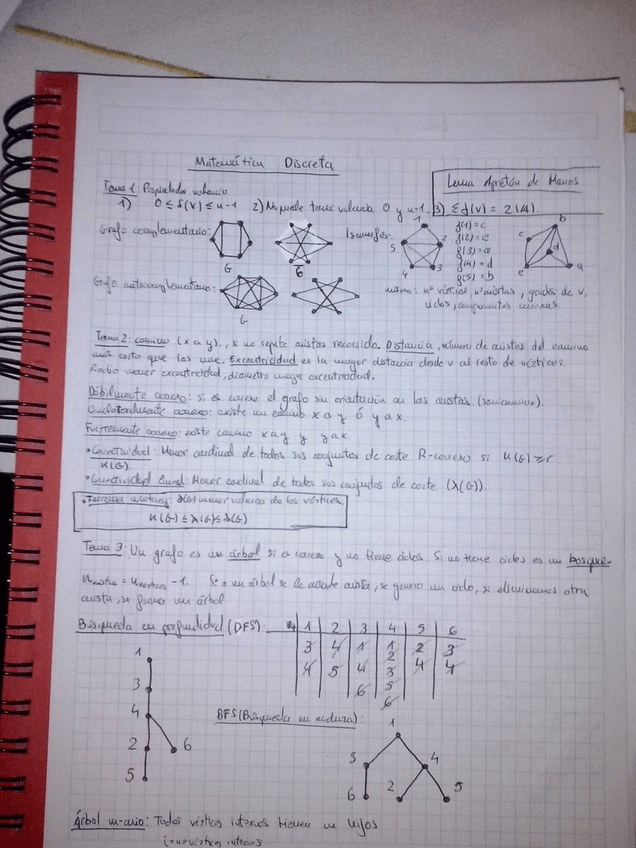 Matemática Discreta
Lema Apretón de Manos
Tema 1: Propiedades valencia
1) 0 ≤ δ(V) ≤ n-1 2) No puede tener valencia 0 y n-1. 3) Σδ(V) = 2|A|.
Grafo complementario:
G
G
Isomorfos:
1
2
3
4
5
f(1)=c
f(2)=e
f(3)=a
f(4)=d
f(5)=b
b
c
d
e
a
Grafo autocomplementario:
G
mismo: nº vértices, nº aristas, grados de v,
ciclos, componentes conexas.
Tema 2: camino (x a y), si no repite aristas recorrido. Distancia, número de aristas del camino
más corto que los une. Excentricidad es la mayor distancia desde v al resto de vértices.
Radio menor excentricidad, diámetro mayor excentricidad.
Débilmente conexo: si es conexo el grafo sin orientación en las aristas. (semicamino).
Unilateralmente conexo: existe un camino x a y ó y a x.
Fuertemente conexo: existe camino x a y y y a x.
• Conectividad: Menor cardinal de todos sus conjuntos de corte R-conexo si K(G) ≥ r
K(G).
• Conectividad lineal: Menor cardinal de todos sus conjuntos de corte (λ(G)).
• δ(G) menor valencia de los vértices.
K(G) ≤ λ(G) ≤ δ(G)
Tema 3: Un grafo es un árbol si es conexo y no tiene ciclos. Si no tiene ciclos es un bosque.
n aristas = n vértices - 1. Si a un árbol se le añade arista, se genera un ciclo, si eliminamos otra
arista, se forma un árbol
Búsqueda en profundidad (DFS):
1 2 3 4 5 6
3 4 1 1 2 3
4 5 4 2 4 4
6 3
5
6
1
3
4
2 6
5
BFS (Búsqueda en anchura):
1
3 4
6 2 5
Árbol m-ario: Todos vértices internos tienen m hijos
i = nº vértices internos